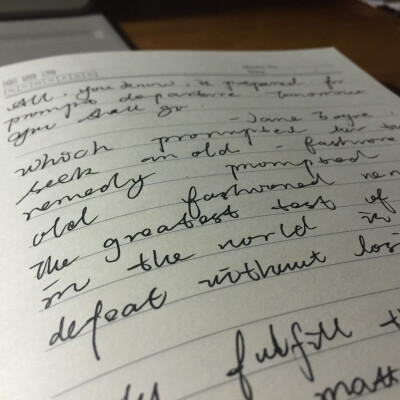 All, you know, is prepared for
prompt departure tomorrow
you shall go.
- Jane Eyre
which prompted her to
seek an old - fashione
remedy prompted
old fashioned rem
The greatest test of
in the world is
defeat without losi
fulfill th
matt